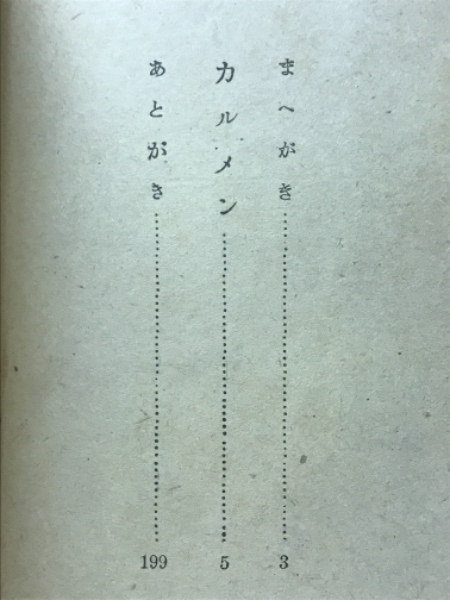 まへがき……3
カルメン……5
あとがき……199